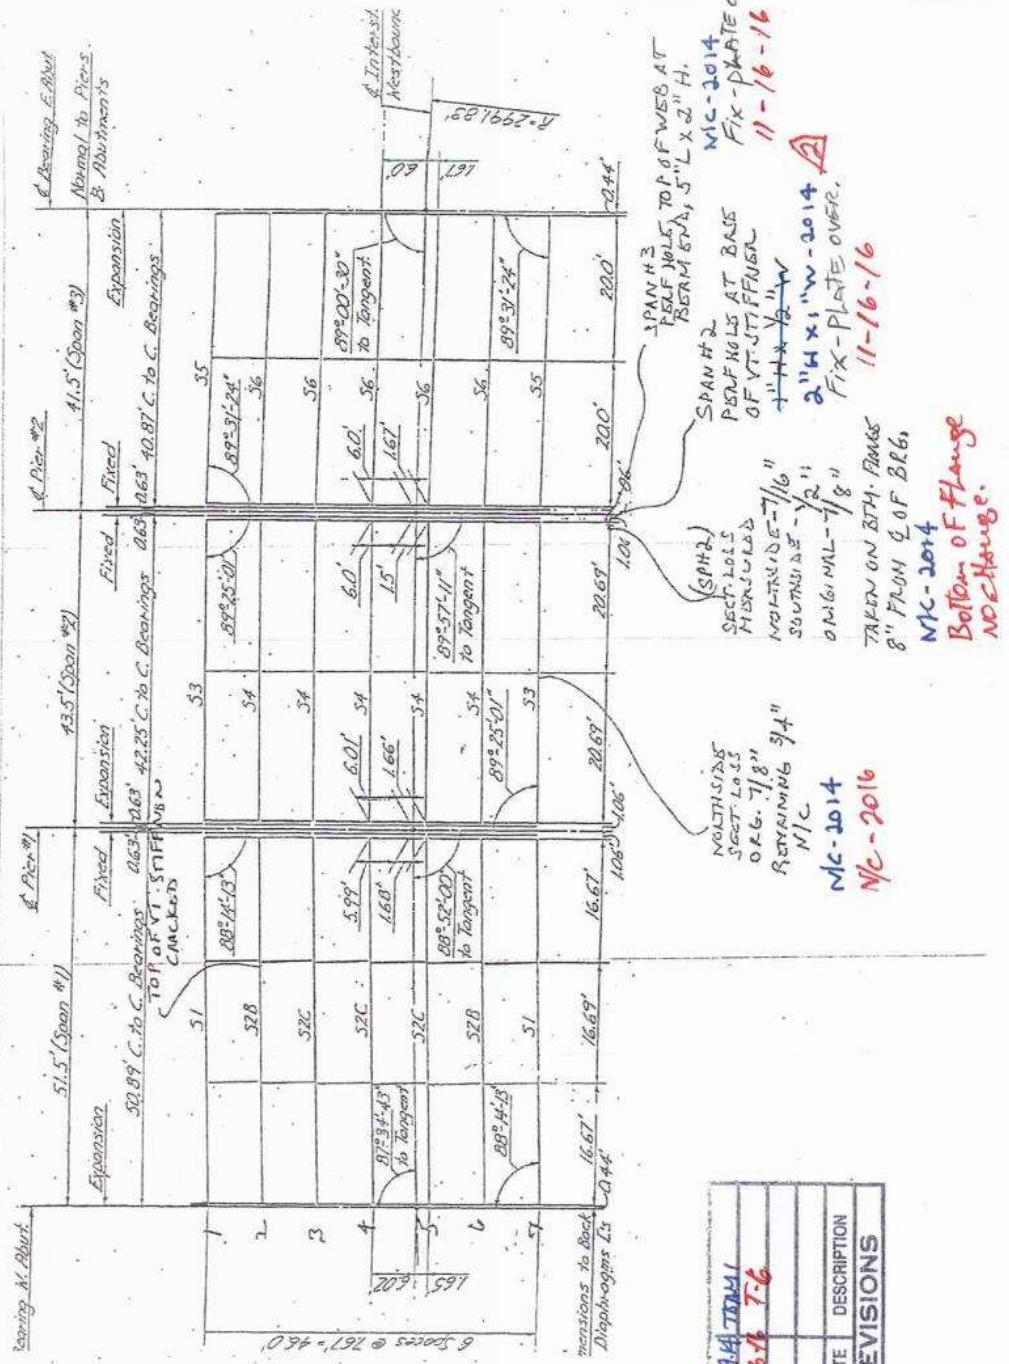 ¢ Bearing E. Abut
Normal to Piers
& Abutments
¢ Pier #2
¢ Pier #1
Bearing W. Abut.
51.5' (Span #1)
43.5' (Span #2)
41.5' (Span #3)
Expansion
Fixed
Expansion
Fixed
Fixed
Expansion
50.89' C. to C. Bearings
0.63'
0.63'
42.25' C. to C. Bearings
0.63'
0.63'
40.87' C. to C. Bearings
TOP OF VT. STIFFNER
CRACKED
¢ Interst.
Westbound
R=2991.83'
6.0'
1.67
1
2
3
4
5
6
7
6.02
1.65
6 Spaces @ 7.67' = 46.0'
S1
S2B
S2C
S2C
S2C
S2B
S1
S3
S4
S4
S4
S4
S4
S3
S5
S6
S6
S6
S6
S6
S5
88°-14'-13"
5.99'
1.68'
88°-52'-00"
to Tangent
87°-34'-43"
to Tangent
88°-14'-13"
89°-25'-01"
6.0'
1.5'
89°-57'-11"
to Tangent
6.01'
1.66'
89°-25'-01"
89°-31'-24"
6.0'
1.67'
89°-00'-30"
to Tangent
89°-31'-24"
mensions to Back
Diaphragms Ls
0.44'
16.67'
16.69'
16.67'
1.06'
1.06'
20.69'
20.69'
1.06'
.06'
20.0'
20.0'
0.44'
NORTHSIDE
SECT. LOSS
ORG. 7/8"
REMAINING 3/4"
N/C
N/C-2014
N/C-2016
(SPH2)
SECT. LOSS
MEASURED
NORTHSIDE-7/16"
SOUTHSIDE-1/2"
ORIGINAL-7/8"
TAKEN ON BTM. FLANGE
8" FROM ¢ OF BRG.
N/C-2014
Bottom OF Flange
NO CHange.
SPAN #2
PERF HOLS AT BASE
OF VT. STIFFNER
1"H X 1/2"W
2"H X 1"W-2014
FIX-PLATE OVER.
11-16-16
2
SPAN #3
PERF HOLE, TOP OF WEB AT
BEAM END, 5"L X 2"H.
N/C-2014
FIX-PLATE
11-16-16
T-6
DESCRIPTION
REVISIONS